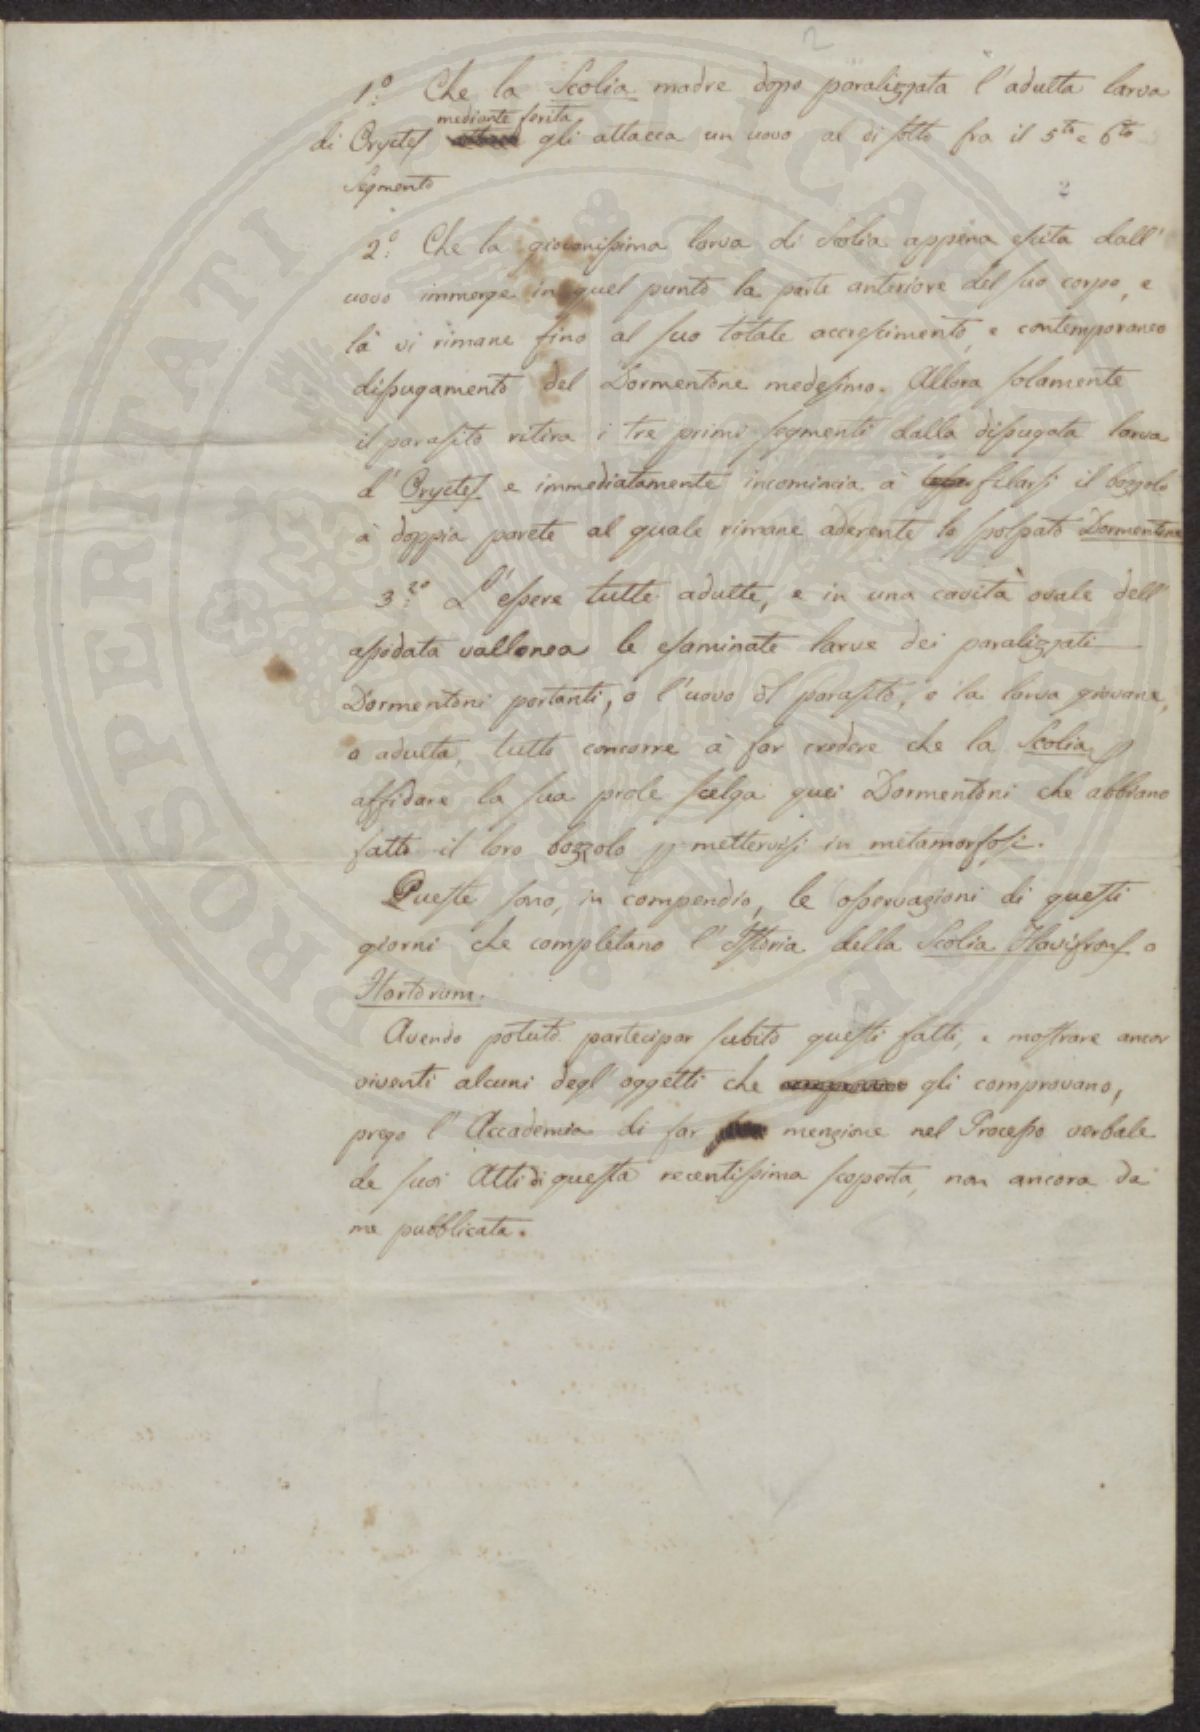 2
1.° Che la Scolia madre dopo paralizzata l'adulta larva
mediante ferita
di Oryctes gli attacca un uovo al di sotto fra il 5to e 6to
Segmento
2
2.° Che la giovanissima larva di Scolia appena escita dall'
uovo immerge in quel punto la parte anteriore del suo corpo, e
là vi rimane fino al suo totale accrescimento, e contemporaneo
dissugamento del Dormentone medesimo. Allora solamente
il parasito ritira i tre primi segmenti dalla dissugata larva
d'Oryctes e immediatamente incomincia à filarsi il bozzolo
à doppia parete al quale rimane aderente lo spolpato Dormentone
3.° L'essere tutte adulte, e in una cavità ovale dell'
assodata vallonea le esaminate larve dei paralizzati
Dormentoni portanti, o l'uovo del parasito, o la larva giovane,
o adulta, tutto concorre à far credere che la Scolia p
affidare la sua prole scelga quei Dormentoni che abbiano
fatto il loro bozzolo p mettervisi in metamorfosi.
Queste sono, in compendio, le osservazioni di questi
giorni che completano l'Istoria della Scolia Flavifrons o
Hortorum.
Avendo potuto partecipar subito questi fatti, e mostrare ancor
viventi alcuni degl'oggetti che gli comprovano,
prego l'Accademia di far menzione nel Processo verbale
de suoi Atti di questa recentissima scoperta, non ancora da
me pubblicata.
PROSPERITATI PUBLICAE